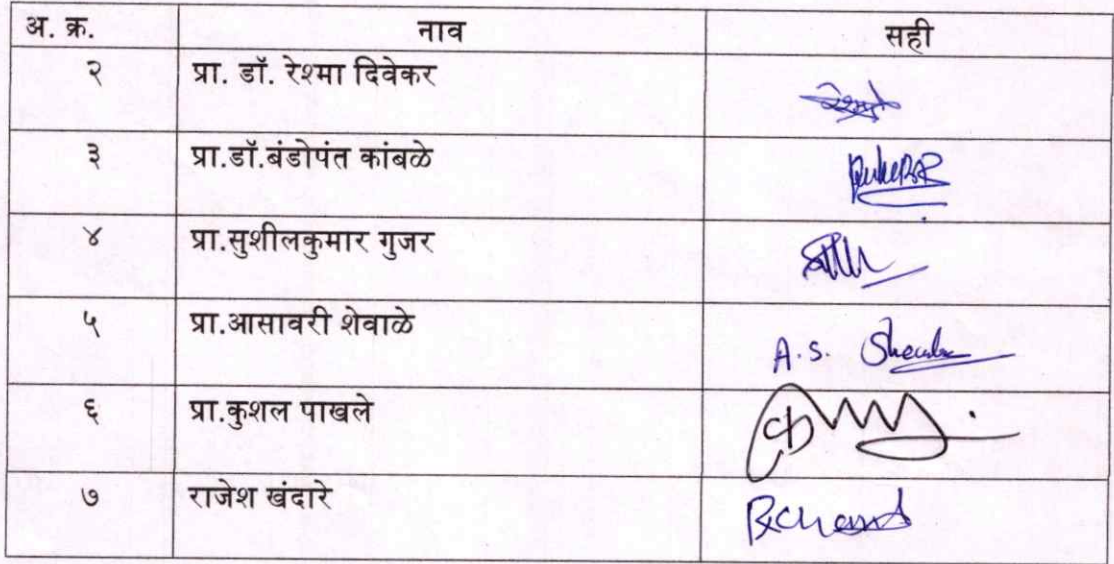 अ. क्र. नाव सही
२ प्रा. डॉ. रेश्मा दिवेकर
३ प्रा.डॉ.बंडोपंत कांबळे
४ प्रा.सुशीलकुमार गुजर
५ प्रा.आसावरी शेवाळे A.S.
६ प्रा.कुशल पाखले
७ राजेश खंदारे